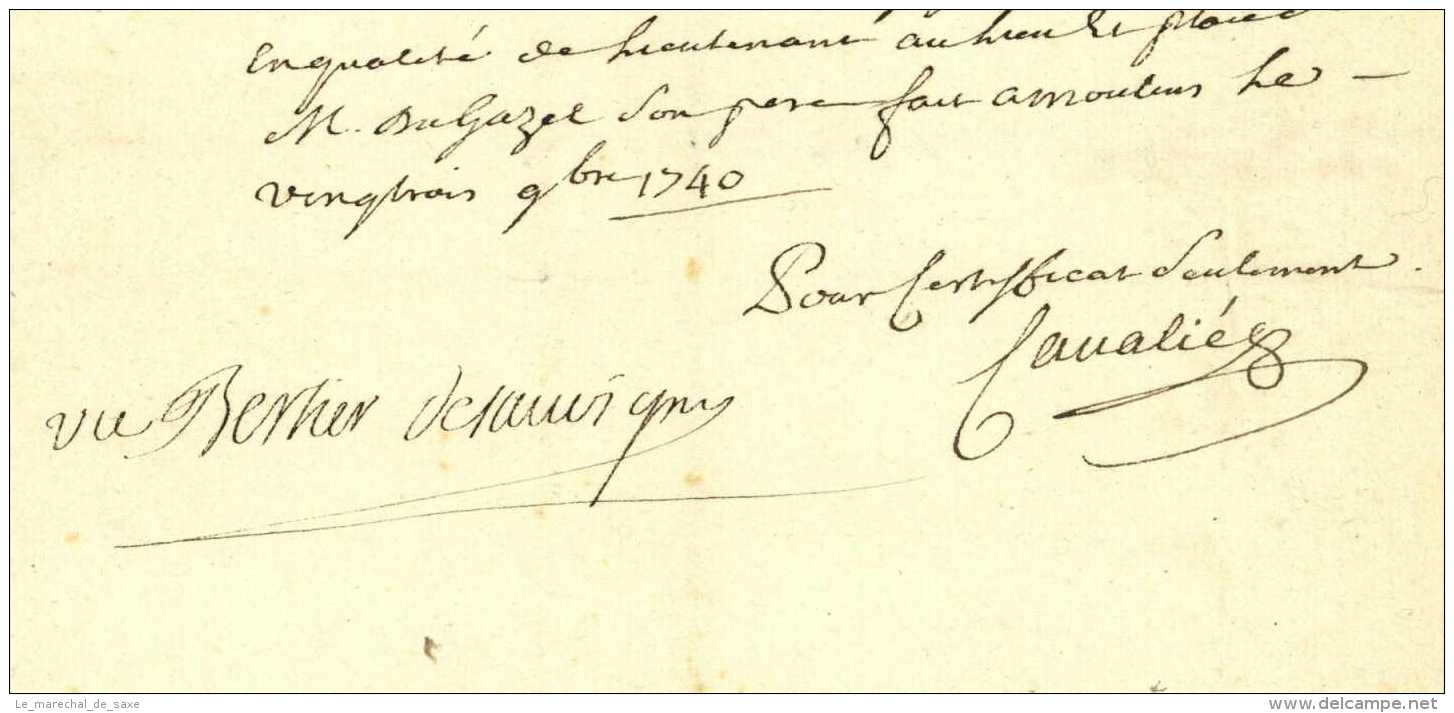 En qualité de Lieutenant au lieu Et place
M. DuGazel Son pere fait a moulins Le —
vingtrois 9bre 1740
Pour Certifficat Seulement.
Caualié
vu Bertier desauvigny
Le_marechal_de_saxe
delcampe.net